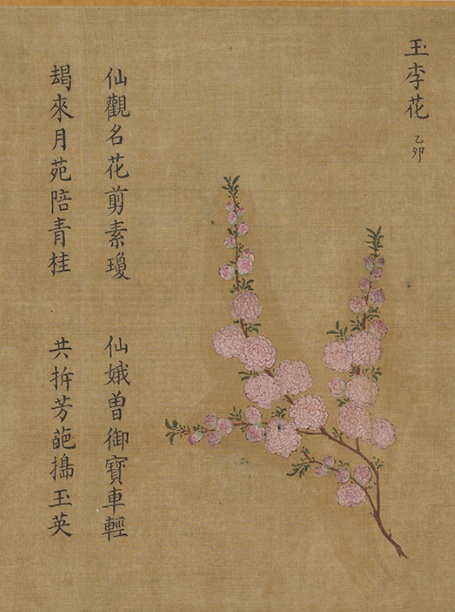 玉李花 乙卯
仙觀名花剪素瓊 仙娥曾御寶車輕
朅來月苑陪青桂 共拆芳葩搗玉英